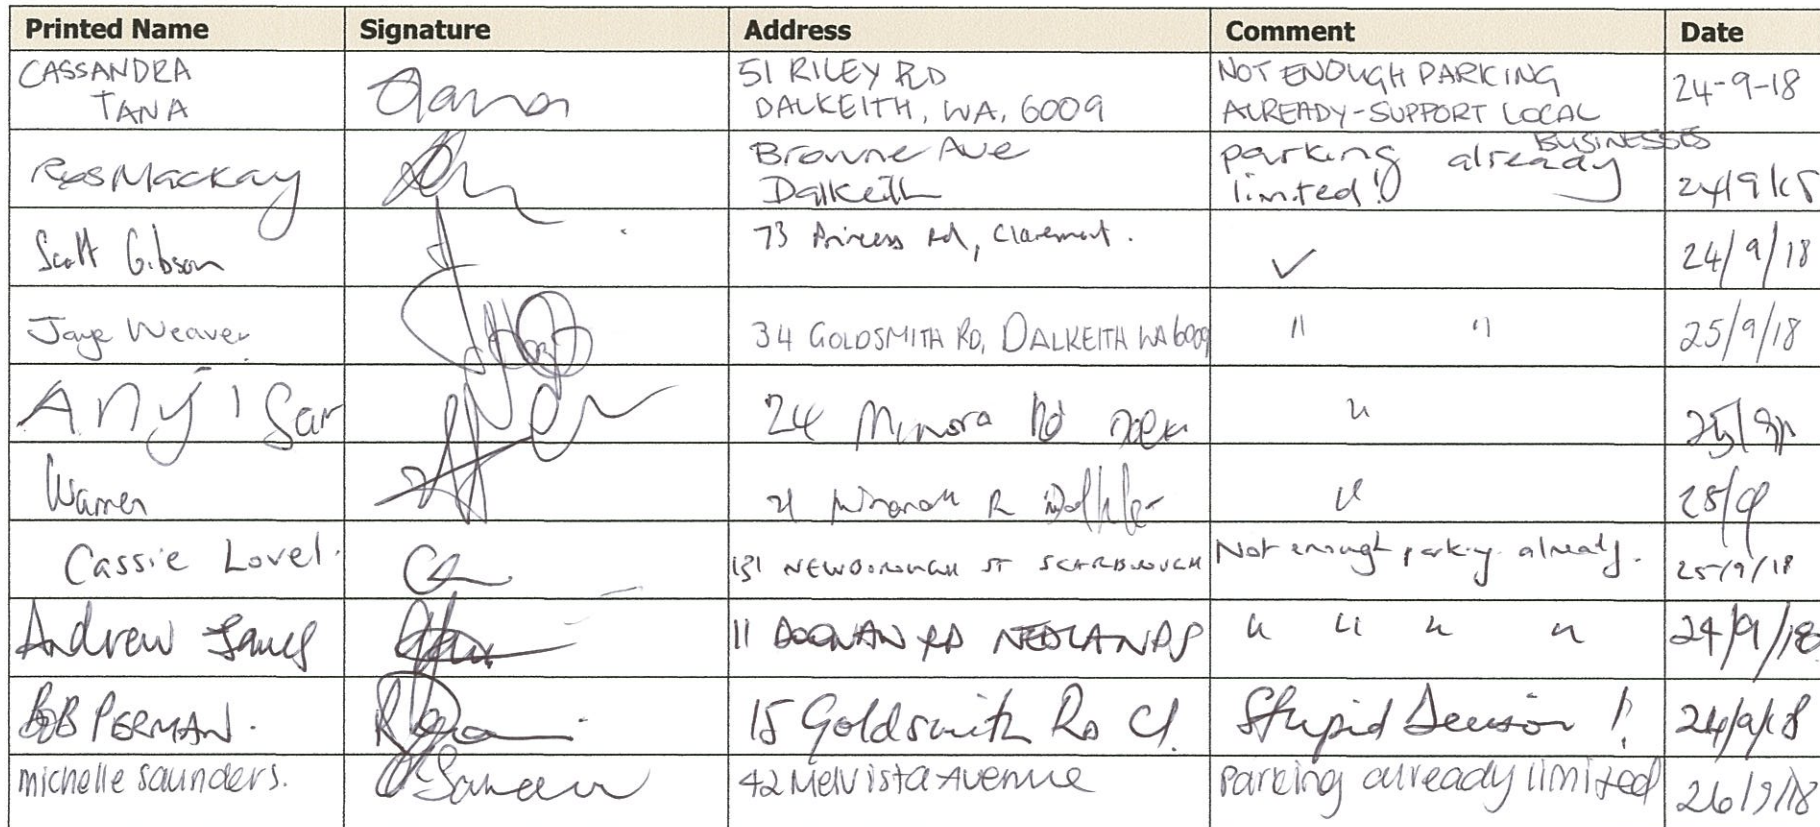 Printed Name Signature Address Comment Date
CASSANDRA
TANA
51 RILEY RD
DALKEITH, WA, 6009
NOT ENOUGH PARKING
ALREADY-SUPPORT LOCAL
BUSINESSES
24-9-18
Ros Mackay
Browne Ave
Dalkeith
parking already
limited!
24/9/18
Scott Gibson 73 Princess Rd, Claremont. ✓ 24/9/18
Jaye Weaver 34 GOLDSMITH RD, DALKEITH WA 6009 " " 25/9/18
24 Minora Rd " 25/9
Warren 25/9
Cassie Lovel. 131 NEWBOROUGH ST SCARBOROUGH Not enough parking already. 25/9/18
Andrew James 11 DOONAN RD NEDLANDS " " " " 24/9/18
BOB PERMAN. 15 Goldsmith Rd Cl. Stupid Decision ! 24/9/18
michelle saunders. 42 Melvista Avenue parking already limited 26/9/18